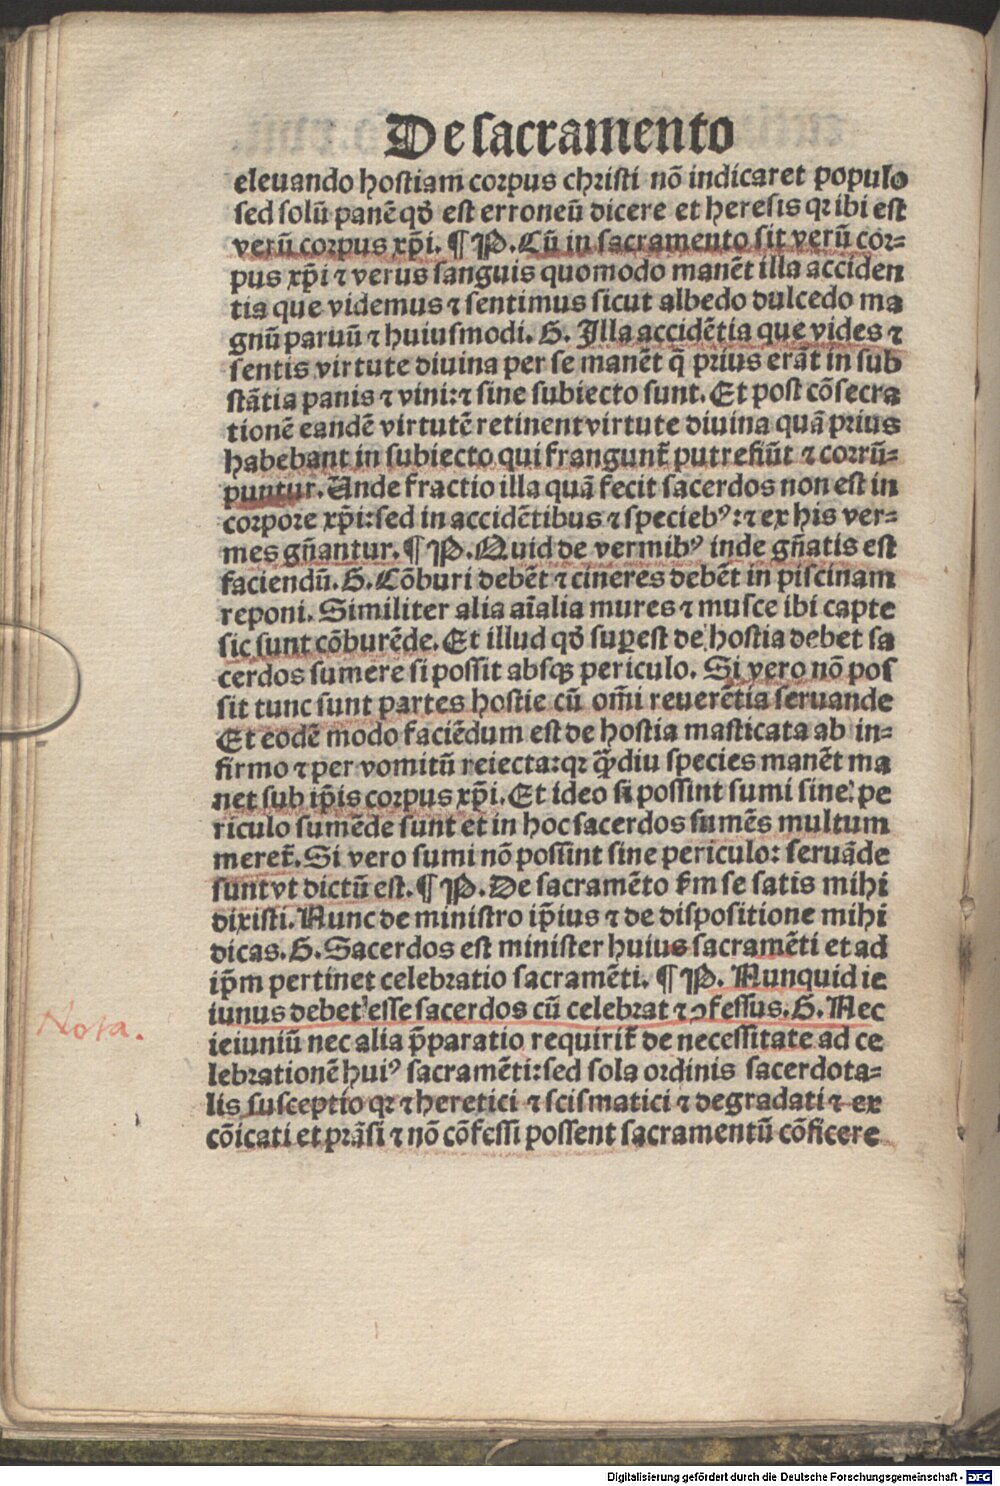 De sacramento
eleuando hostiam corpus christi nō indicaret populo
sed solū panē qđ est erroneū dicere et heresis qꝛ ibi est
verū corpus xp̄i. ¶ P. Cū in sacramento sit verū cor⸗
pus xp̄i ⁊ verus sanguis quomodo manēt illa acciden
tia que videmus ⁊ sentimus sicut albedo dulcedo ma
gnū paruū ⁊ huiusmodi. G. Illa accidētia que vides ⁊
sentis virtute diuina per se manēt q̄ prius erāt in sub
stātia panis ⁊ vini:⁊ sine subiecto sunt. Et post cōsecra
tionē eandē virtutē retinent virtute diuina quā prius
habebant in subiecto qui frangunt̄ putrefiūt ⁊ corrū⸗
puntur. Unde fractio illa quā fecit sacerdos non est in
corpore xp̄i:sed in accidētibus ⁊ specieb⁹:⁊ ex his ver⸗
mes gn̄antur. ¶ P. Quid de vermib⁹ inde gn̄atis est
faciendū. G. Cōburi debēt ⁊ cineres debēt in piscinam
reponi. Similiter alia aīalia mures ⁊ musce ibi capte
sic sunt cōburēde. Et illud qđ suꝑest de hostia debet sa
cerdos sumere si possit absqꝫ periculo. Si vero nō pos
sit tunc sunt partes hostie cū om̄i reuerētia seruande
Et eodē modo faciēdum est de hostia masticata ab in⸗
firmo ⁊ per vomitū reiecta:qꝛ q̄ȝdiu species manēt ma
net sub ip̄is corpus xp̄i. Et ideo si possint sumi sine pe
riculo sumēde sunt et in hoc sacerdos sumēs multum
meret̄. Si vero sumi nō possint sine periculo: seruāde
sunt vt dictū est. ¶ P. De sacramēto fm se satis mihi
dixisti. Nunc de ministro ip̄ius ⁊ de dispositione mihi
dicas. G. Sacerdos est minister huius sacramēti et ad
ip̄m pertinet celebratio sacramēti. ¶ P. Nunquid ie
iunus debet esse sacerdos cū celebrat ⁊ ꝯfessus. G. Nec
ieiuniū nec alia p̄paratio requirit̄ de necessitate ad ce
lebrationē hui⁹ sacramēti:sed sola ordinis sacerdota⸗
lis susceptio qꝛ ⁊ heretici ⁊ scismatici ⁊ degradati ⁊ ex
cōicati et prāsi ⁊ nō cōfessi possent sacramentū cōficere
Nota.
Digitalisierung gefördert durch die Deutsche Forschungsgemeinschaft - DFG